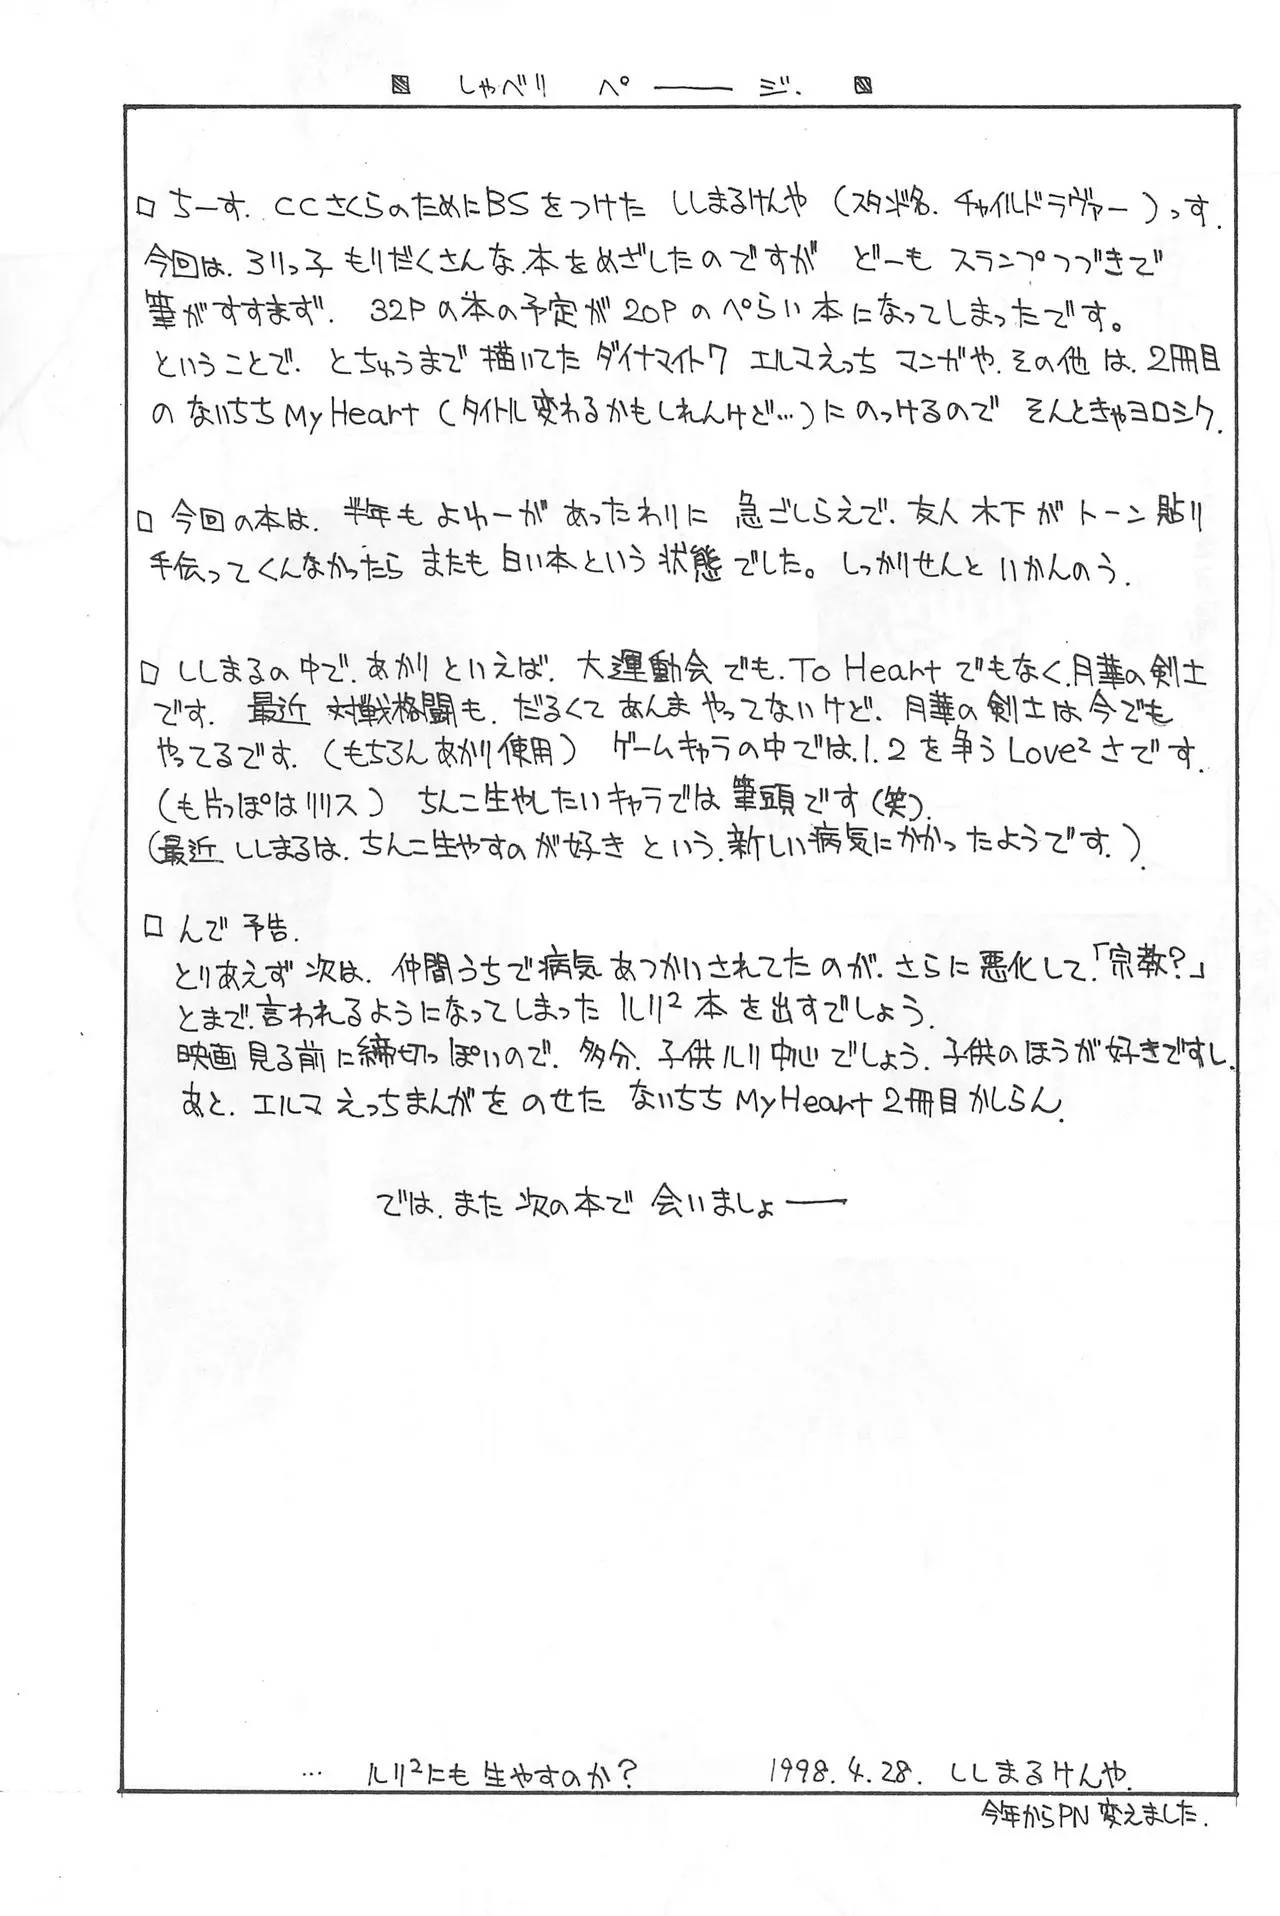 しゃべりペ――ジ.
□ ちーす. CCさくらのためにBSをつけた ししまるけんや (スタンド名. チャイルドラヴァー)っす.
今回は. ろりっ子もりだくさんな本をめざしたのですが どーも スランプつづきで
筆がすすまず. 32Pの本の予定が20Pのぺらい本になってしまったです。
ということで. とちゅうまで描いてた ダイナマイト7 エルマえっち マンガや. その他は. 2冊目
の ないちち My Heart (タイトル変わるかもしれんけど…)にのっけるので そんときゃヨロシク.
□ 今回の本は. 半年もよゆーがあったわりに 急ごしらえで. 友人 木下がトーン貼り
手伝ってくんなかったら またも白い本という状態でした。しっかりせんと いかんのう.
□ ししまるの中で. あかりといえば. 大運動会でも. To Heartでもなく. 月華の剣士
です. 最近 対戦格闘も. だるくてあんまやってないけど. 月華の剣士は今でも
やってるです. (もちろんあかり使用) ゲームキャラの中では. 1. 2を争うLove²さです.
(も片っぽはリリス) ちんこ生やしたいキャラでは筆頭です(笑).
(最近 ししまるは. ちんこ生やすのが好き という. 新しい病気にかかったようです. ).
□ んで 予告.
とりあえず次は. 仲間うちで病気あつかいされてたのが. さらに悪化して.「宗教?」
とまで. 言われるようになってしまった ルリ² 本を出すでしょう.
映画見る前に締切っぽいので. 多分. 子供ルリ中心でしょう. 子供のほうが好きですし.
あと. エルマ えっちまんがを のせた ないちち My Heart 2冊目かしらん.
では. また 次の本で 会いましょ――
… ルリ²にも 生やすのか? 1998. 4. 28. ししまるけんや.
今年からPN変えました.